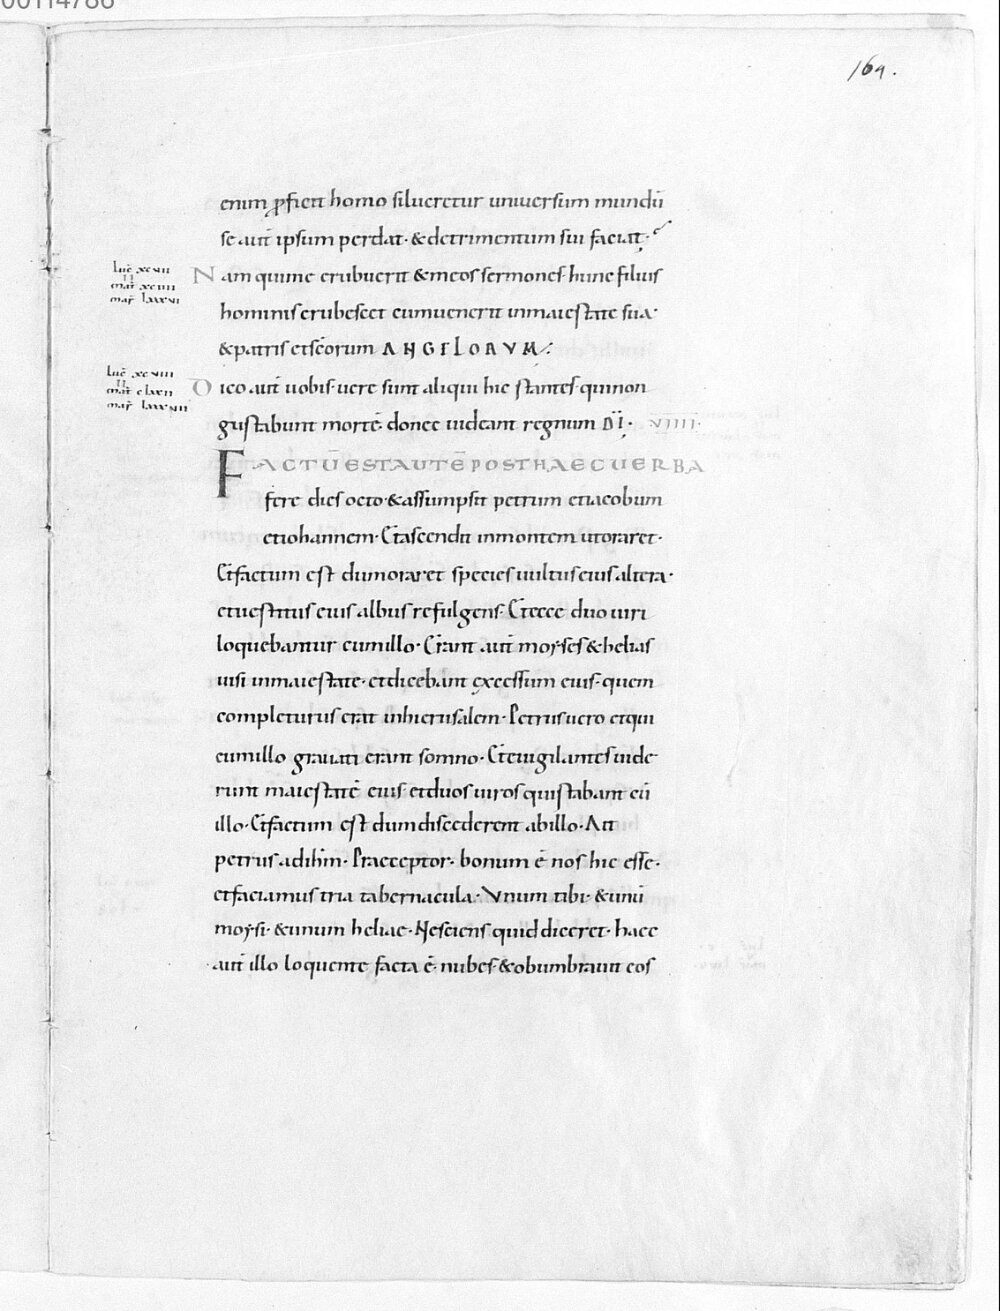 164.
enim ꝓficit homo silucretur uniuersum mundū
se aut̄ ipsum perdat· & detrimentum sui faciat;
luc̄ xcvii
II
mat̄ xciiii
mar̄ lxxxvi
Nam quime erubuerit & meos sermones hunc filius
hominis erubescet cumuenerit inmaiestate sua·
& patris etsc̄orum ANGELORUM:
luc̄ xcviii
II
mat̄ clxxii
mar̄ lxxxvii
Dico aut̄ uobis· uere sunt aliqui hic stantes· quinon
gustabunt mortē· donec uideant regnum DĪ· VIIII·
FACTŪ EST AUTĒ POST HAEC UERBA
fere dies octo· & assumpsit petrum etiacobum
etiohannem· Etascendit inmontem utoraret·
Etfactum est dumoraret species uultus eius altera·
etuestitus eius albus refulgens· Etecce duo uiri
loquebantur cumillo· Erant aut̄ moyses & helias
uisi inmaiestate· etdicebant excessum eius· quem
completurus erat inhierusalem· Petrus uero etqui
cumillo grauati erant somno· Eteuigilantes uide
runt maiestatē eius etduos uiros quistabant cū
illo· Etfactum est dumdiscederent abillo· Ait
petrus adihm̄· Praeceptor· bonum ē nos hic esse·
etfaciamus tria tabernacula· Vnum tibi· & unū
moysi· & unum heliae· Nesciens quid diceret· haec
aut̄ illo loquente facta ē· nubes· & obumbrauit eos